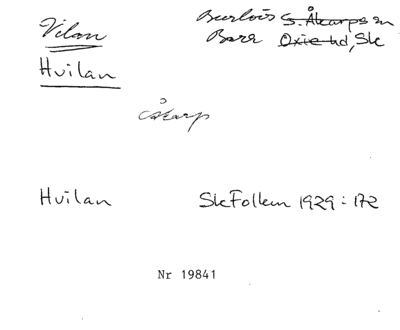 Vilan
Burlövs S. Åkarps sn
Bara Oxie hd, Sk
Hvilan
Åkarp
Hvilan SkFolkm 1929:172
Nr 19841